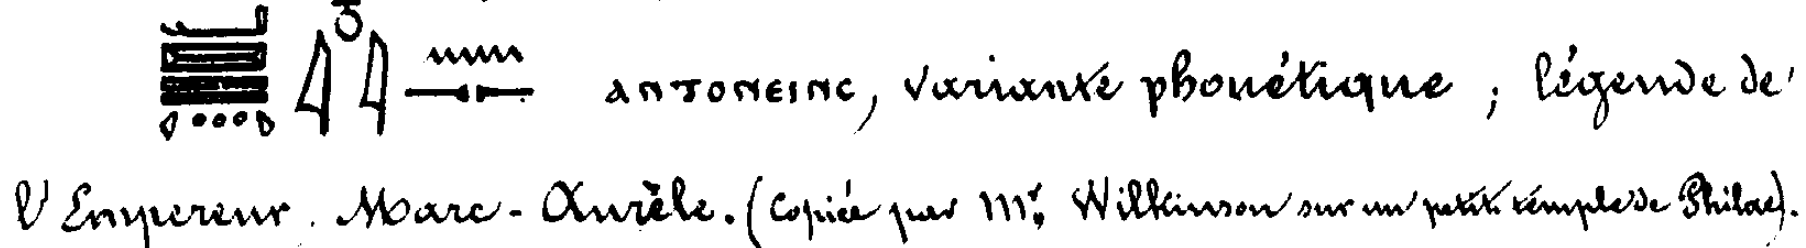 ⲁⲛⲧⲟⲛⲉⲓⲛⲥ, variante phonétique ; légende de
l'Empereur. Marc-Aurèle. (Copiée par Mr. Wilkinson sur un petit temple de Philae).